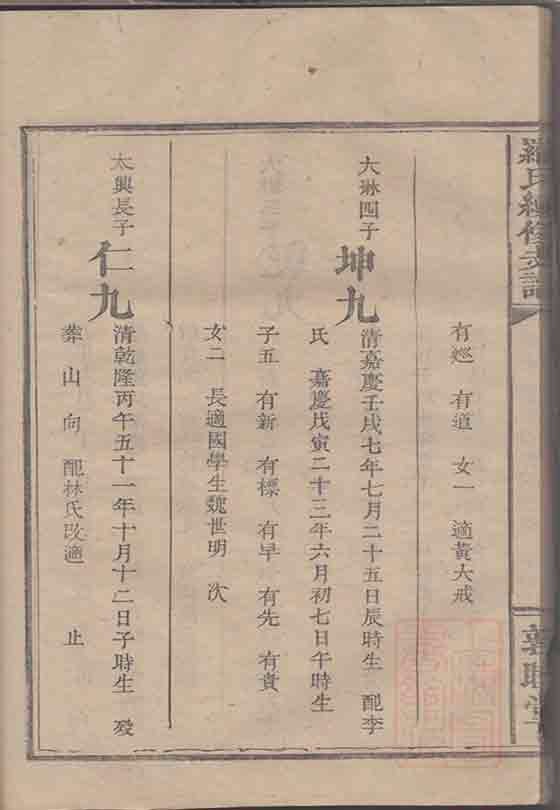 羅氏續修支譜
有廵 有道 女一 適黃大戒
大琳四子 坤九 清嘉慶壬戌七年七月二十五日辰時生 配李
氏 嘉慶戊寅二十三年六月初七日午時生
子五 有新 有標 有早 有先 有貴
女二 長適國學生魏世明 次
太興長子 仁九 清乾隆丙午五十一年十月十二日子時生 歿
葬 山 向 配林氏改適 止